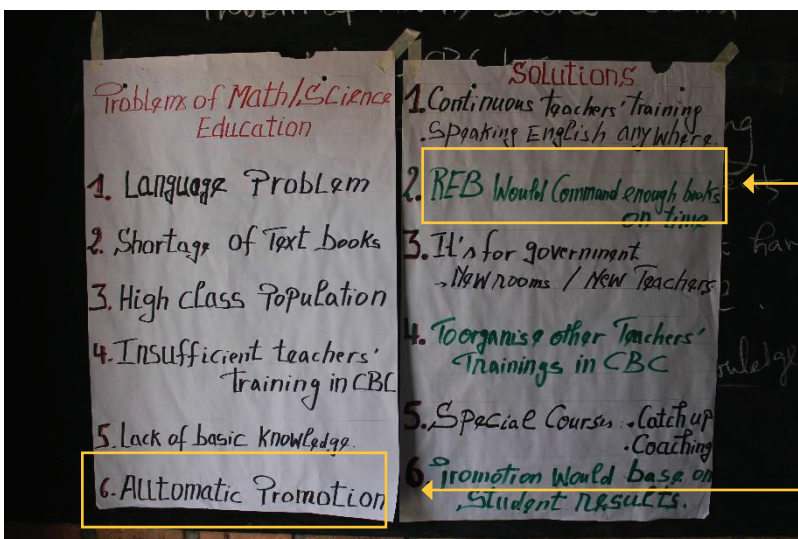 Problems of Math/Science
Education
1. Language Problem
2. Shortage of Text books
3. High class Population
4. Insufficient teachers'
training in CBC
5. Lack of basic Knowledge.
6. Automatic Promotion
Solutions
1. Continuous teachers' training
. Speaking English anywhere.
2. REB Would Command enough books
on time
3. It's for government
. New rooms / New Teachers
4. To organise other Teachers'
Trainings in CBC
5. Special Courses . Catch up
. Coaching
6 Promotion Would base on
Student results.